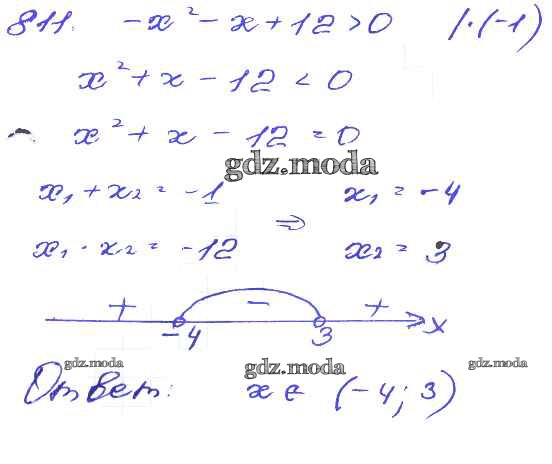 811. -x² - x + 12 > 0 | · (-1)
x² + x - 12 < 0
x² + x - 12 = 0
gdz.moda
x₁ + x₂ = -1 x₁ = -4
⇒
x₁ · x₂ = -12 x₂ = 3
+ - +
-4 3 x
gdz.moda gdz.moda gdz.moda
Ответ: x ∈ (-4; 3)